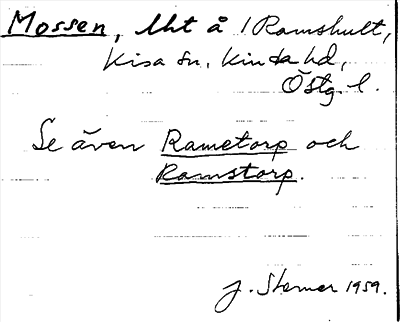 Mossen, lht å 1 Ramshult,
Kisa sn, Kinda hd,
Östg. l.
Se även Rametorp och
Ramstorp.
J. Sterner 1959.